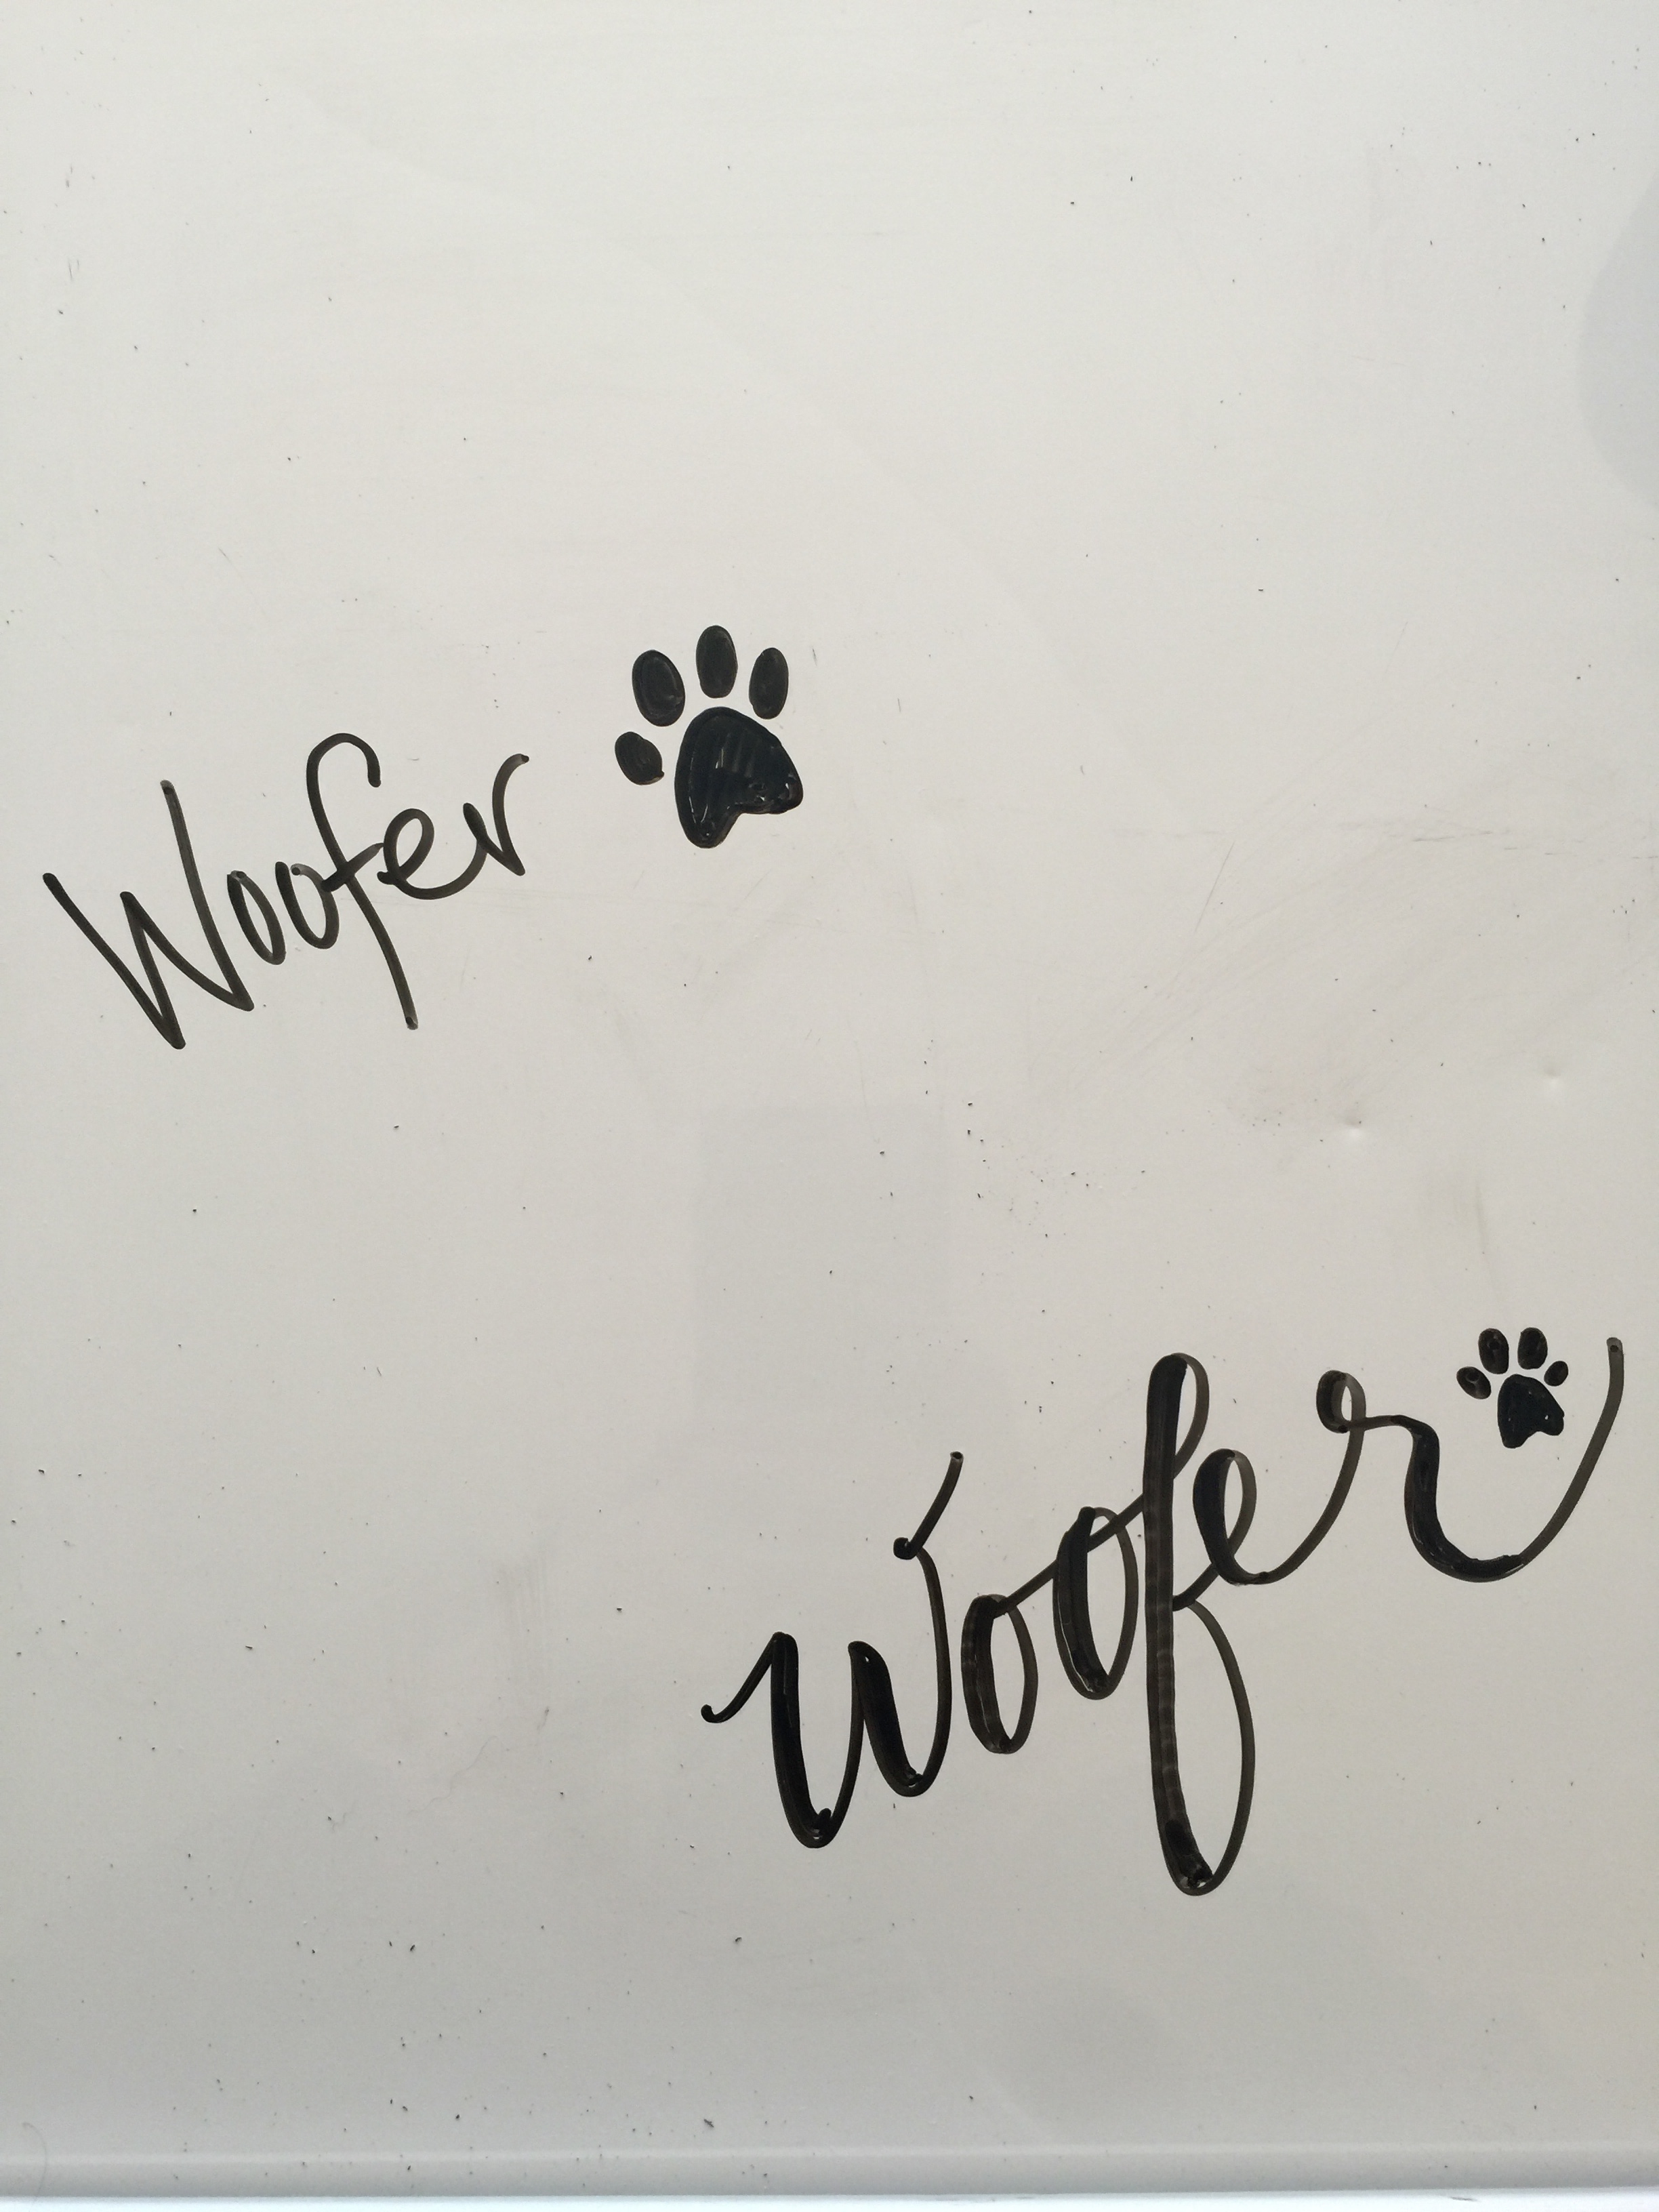 Woofer
Woofer